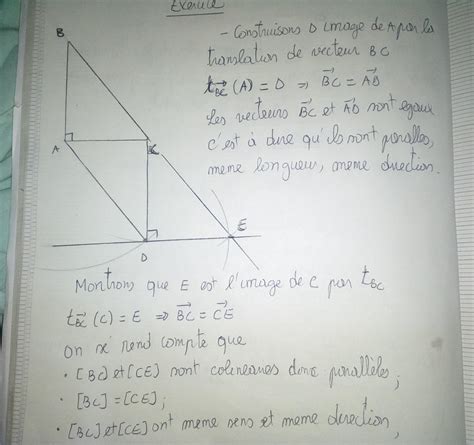 Exercice
B
- Construisons D image de A par la
translation de vecteur BC
t_BC (A) = D ⇒ BC = AD
Les vecteurs BC et AD sont egaux
c'est à dire qu'ils sont paralles,
meme longueur, meme direction.
A
C
E
D
Montrons que E est l'image de C par t_BC
t_BC (C) = E ⇒ BC = CE
On se rend compte que
• [BC) et [CE) sont colineaires donc parallèles;
• [BC] = [CE];
• [BC] et [CE] ont meme sens et meme direction,